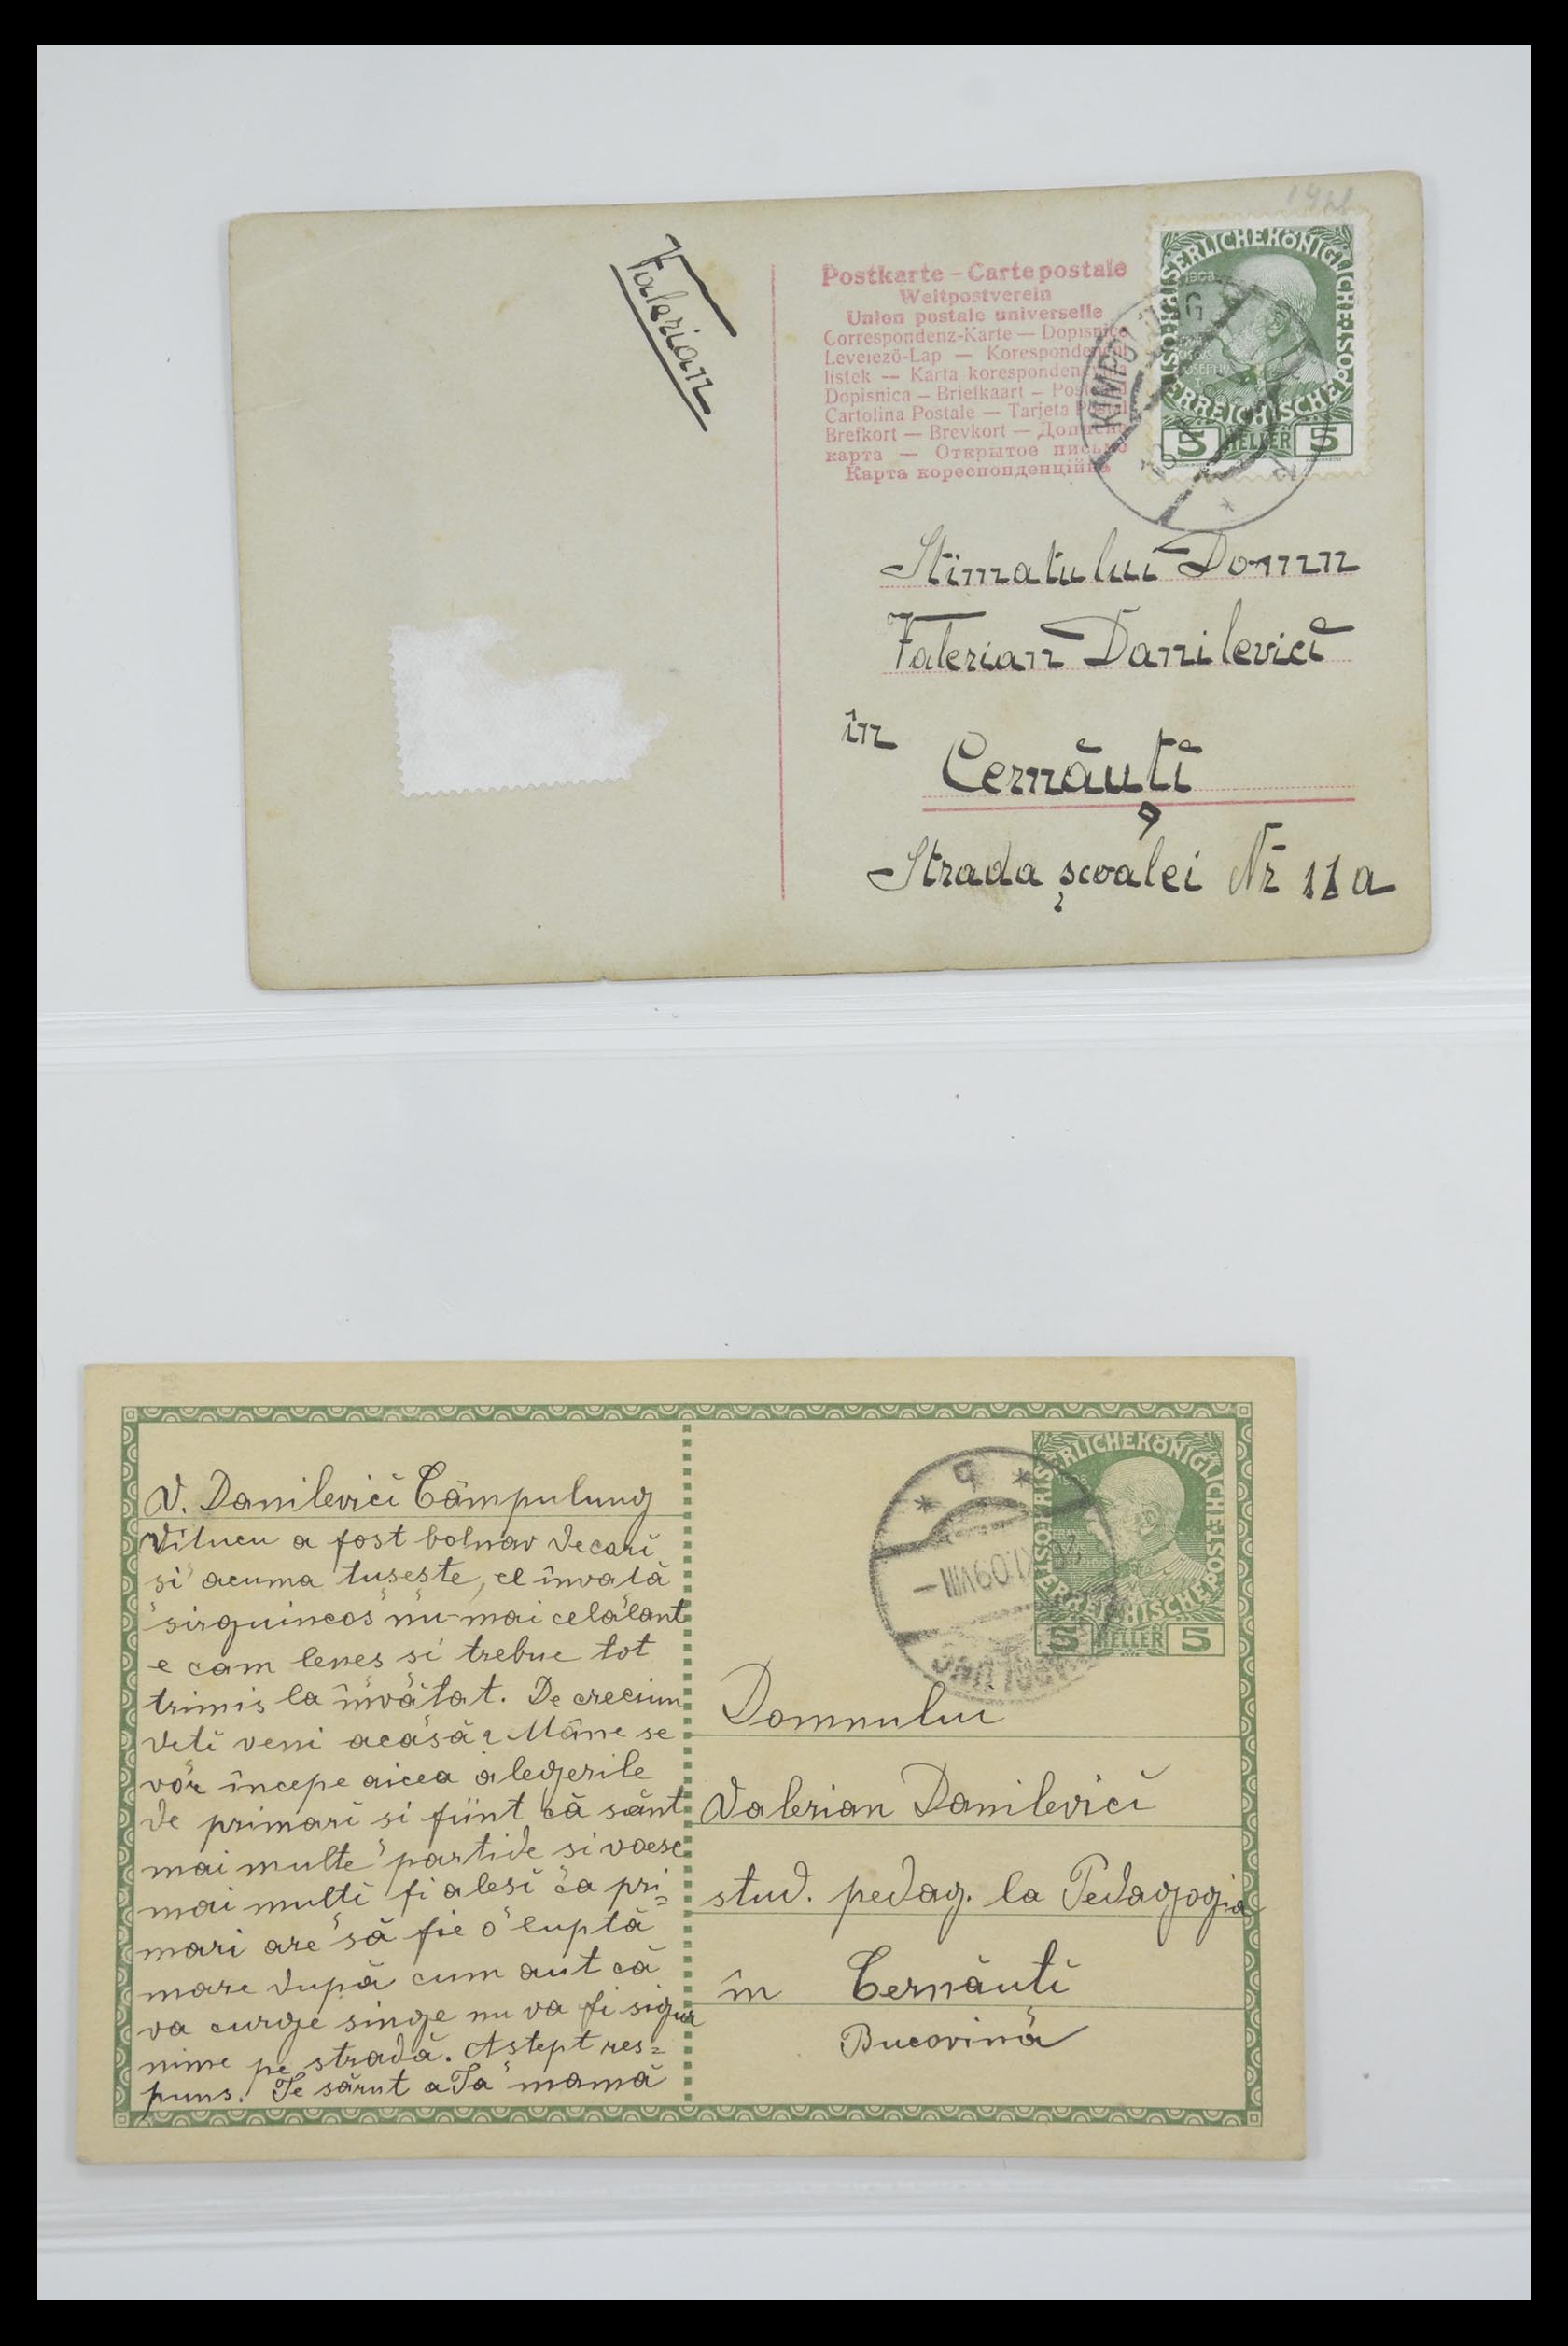 Valerian
Postkarte – Carte postale
Weltpostverein
Union postale universelle
Correspondenz-Karte — Dopisnice
Levelező-Lap — Korespondenční
listek — Karta korespondencyjna
Dopisnica — Briefkaart — Postcard
Cartolina Postale — Tarjeta Postal
Brefkort — Brevkort — Дописна
карта — Открытое письмо
Карта кореспонденційна
KAISERLICHE KÖNIGLICHE ÖSTERREICHISCHE POST
1908
5 HELLER 5
KIMPOLUNG
Stimatului Domn
Valerian Danilevici
în
Cernăuți
Strada școalei Nr 11a
V. Danilevicĭ Câmpulung
Vilucu a fost bolnav decarĭ
si acuma tusește, el învață
sirguincos nu-mai celălant
e cam lenes si trebue tot
trimis la învățat. De crecĭun
vetĭ veni acăsă? Mâne se
vor începe aicea alegerile
de primarĭ si fiint că sânt
mai multe partide si voesc
mai multĭ fi alesĭ ca pri=
mari are să fie o luptă
mare după cum aut că
va curge sînge nu va fi sigur
nime pe stradă. Astept res=
puns. Te sărut a Ta mamă
KAISERLICHE KÖNIGLICHE ÖSTERREICHISCHE POST
5 HELLER 5
Domnului
Valerian Danilevicĭ
stud. pedag. la Pedagogia
în Cernăuțĭ
Bucovină